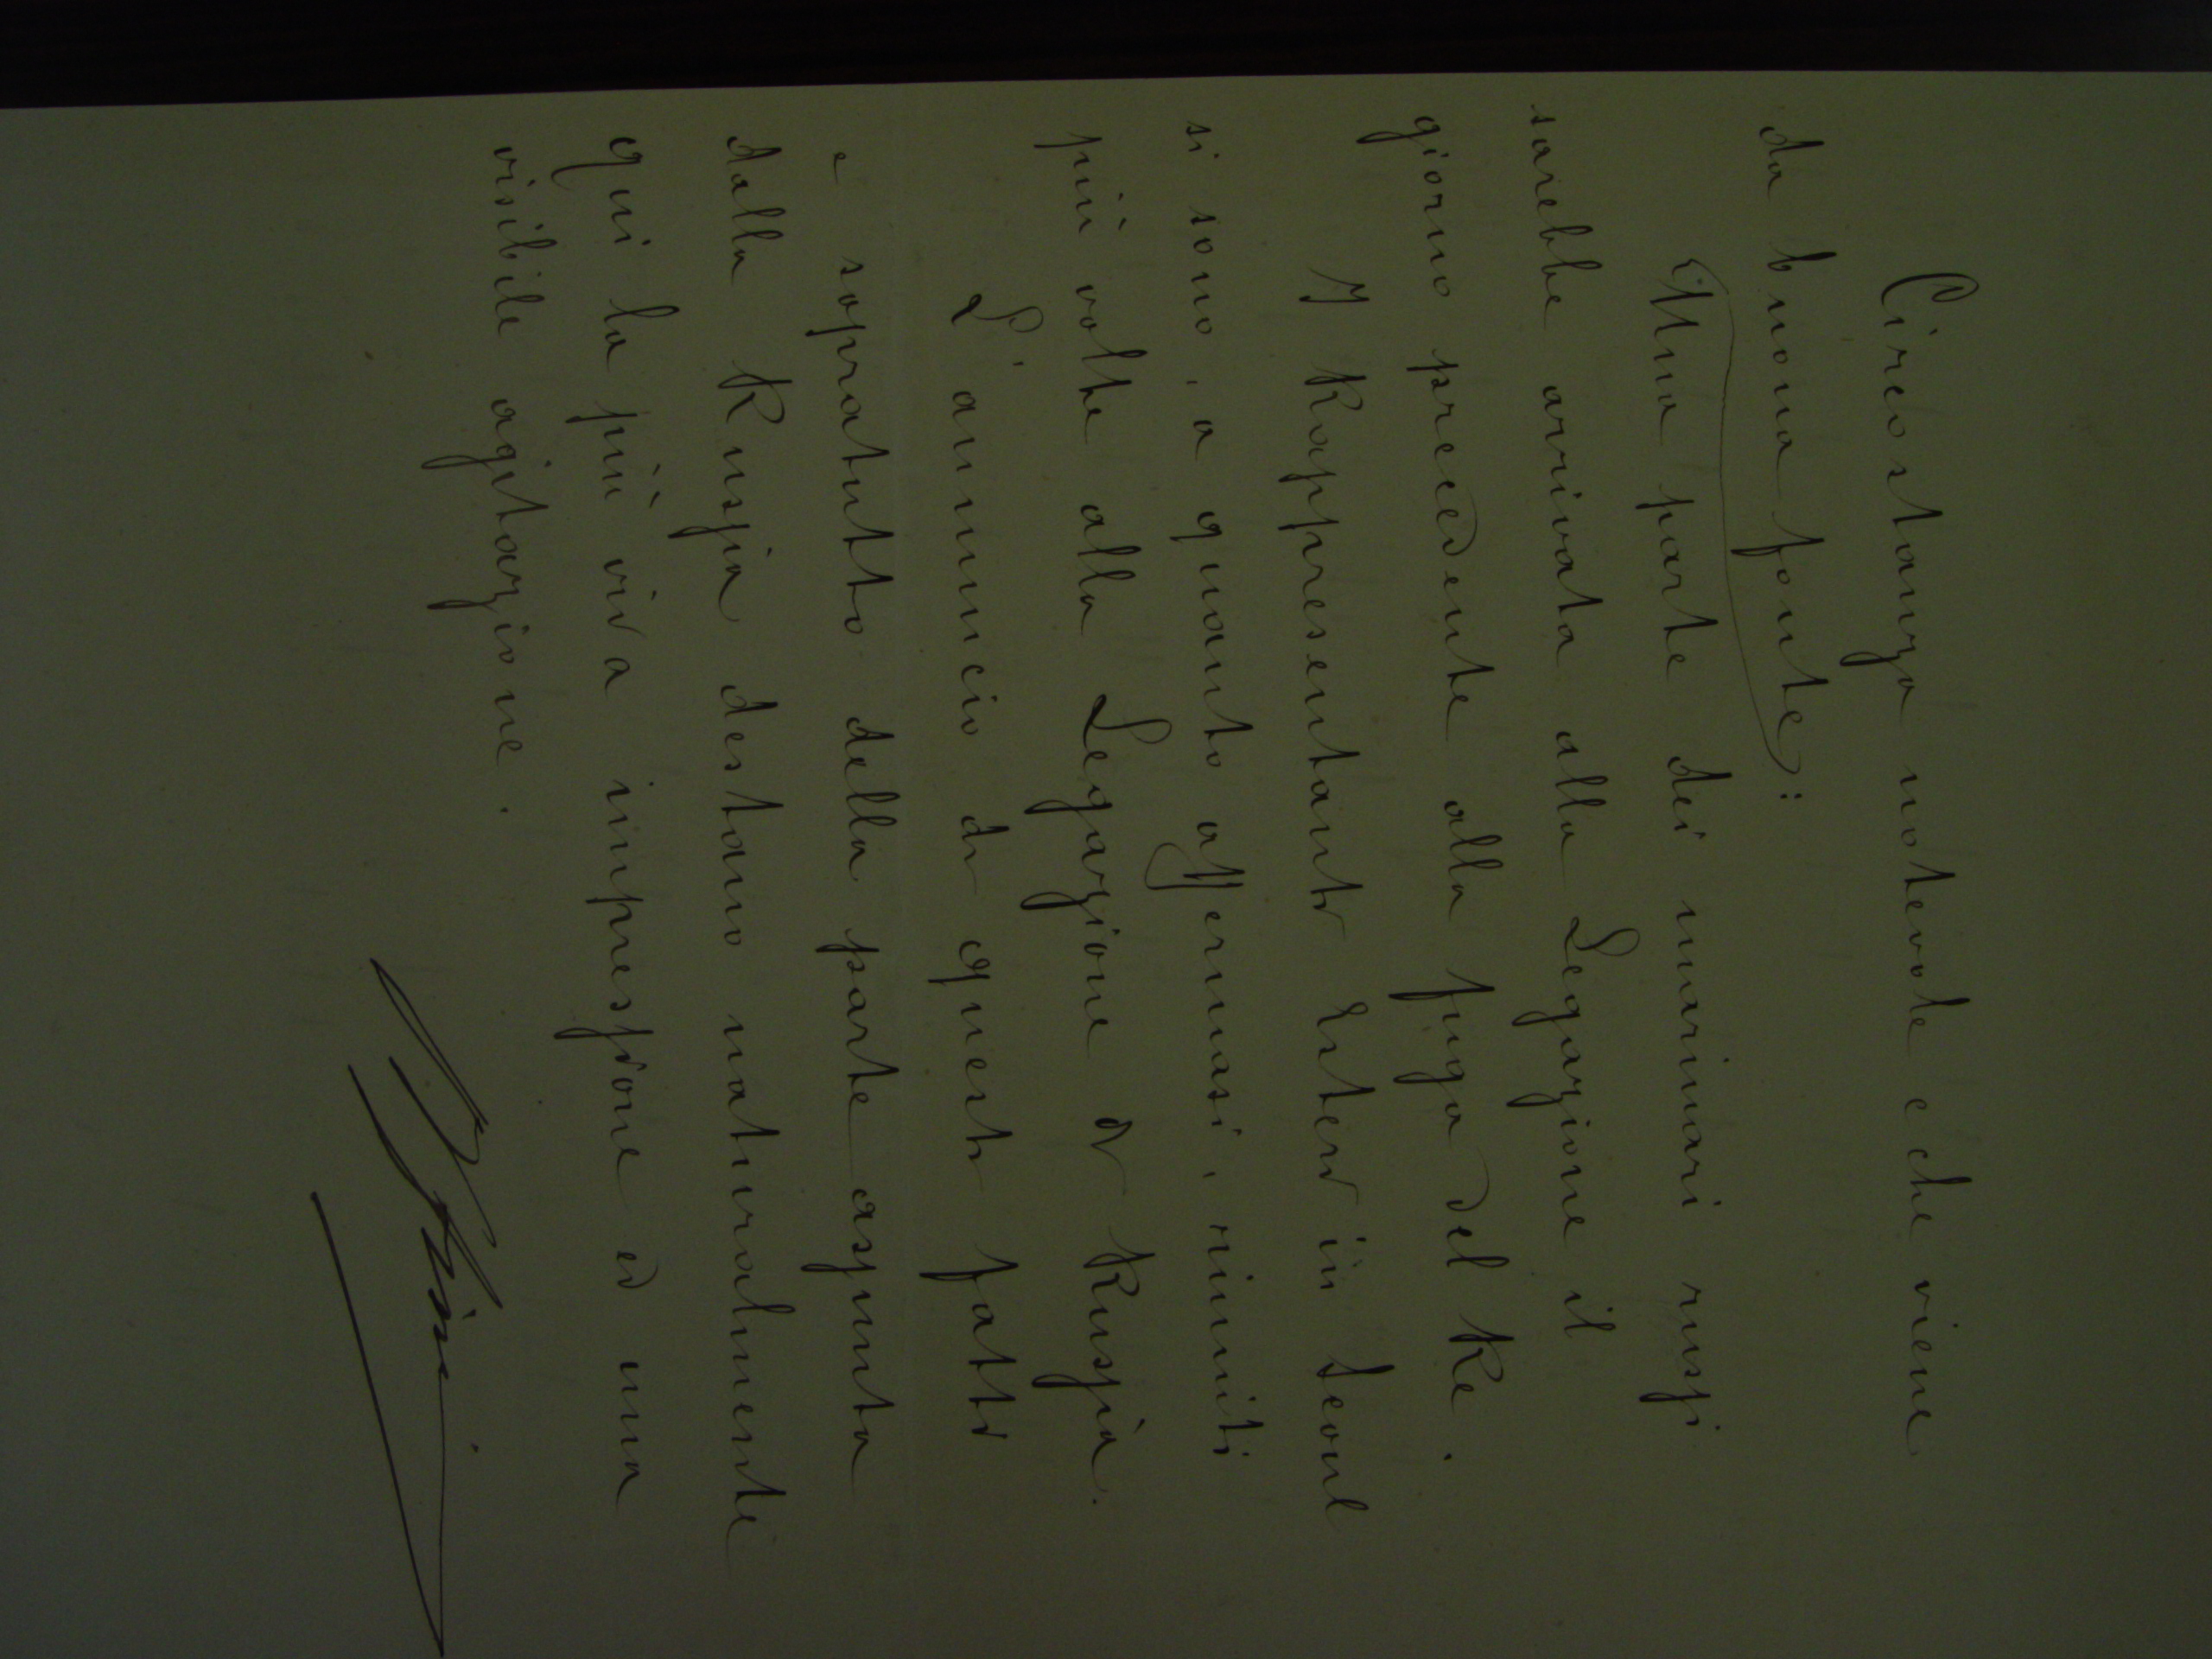 Circostanza notevole e che viene
da buona fonte:
Una parte dei marinari russi
sarebbe arrivata alla Legazione il
giorno precedente alla fuga del Re.
I Rappresentanti Esteri in Seoul
si sono, a quanto affermasi, riuniti
più volte alla Legazione di Russia.
L'annuncio di questi fatti
e sopratutto della parte assunta
dalla Russia destano naturalmente
qui la più viva impressione ed una
visibile agitazione.